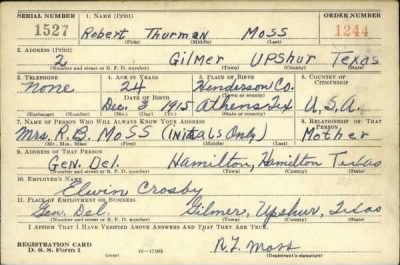 SERIAL NUMBER 1. NAME (Print) ORDER NUMBER
1527 Robert Thurman Moss 1244
(First) (Middle) (Last)
2. ADDRESS (Print)
2 Gilmer UPShur Texas
(Number and street or R. F. D. number) (Town) (County) (State)
3. TELEPHONE 4. AGE IN YEARS 5. PLACE OF BIRTH 6. COUNTRY OF CITIZENSHIP
None 24 Henderson Co.
DATE OF BIRTH
Dec. 3 1915 Athens Tex U.S.A.
(Mo.) (Day) (Yr.) (State or country)
7. NAME OF PERSON WHO WILL ALWAYS KNOW YOUR ADDRESS 8. RELATIONSHIP OF THAT PERSON
Mrs. R.B. Moss (initials Only) Mother
(Mr., Mrs., Miss) (First) (Middle) (Last)
9. ADDRESS OF THAT PERSON
Gen. Del. Hamilton, Hamilton Texas
(Number and street or R. F. D. number) (Town) (County) (State)
10. EMPLOYER'S NAME
Elvin Crosby
11. PLACE OF EMPLOYMENT OR BUSINESS
Gen. Del. Gilmer, Upshur, Texas
(Number and street or R. F. D. number) (Town) (County) (State)
I AFFIRM THAT I HAVE VERIFIED ABOVE ANSWERS AND THAT THEY ARE TRUE.
REGISTRATION CARD
D. S. S. Form 1 (over) R.T. Moss
(Registrant's signature)